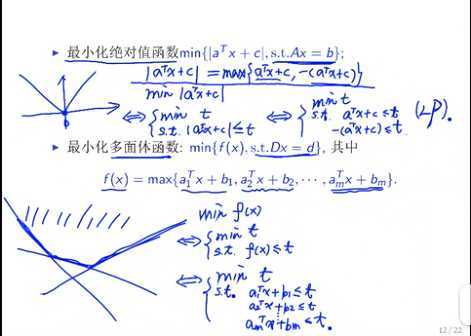 ▸ 最小化绝对值函数min{|aᵀx + c|, s.t.Ax = b};
|aᵀx+c| = max{aᵀx+c, -(aᵀx+c)}
min |aᵀx+c|
⇔ { min t
s.t. |aᵀx+c| ≤ t
⇔ { min t
s.t. aᵀx+c ≤ t
-(aᵀx+c) ≤ t.
(LP).
▸ 最小化多面体函数: min{f(x), s.t.Dx = d}, 其中
f(x) = max{a₁ᵀx + b₁, a₂ᵀx + b₂, ⋯ , aₘᵀx + bₘ}.
min f(x)
⇔ { min t
s.t. f(x) ≤ t
⇔ { min t
s.t. a₁ᵀx+b₁ ≤ t
a₂ᵀx+b₂ ≤ t
⋮
aₘᵀx+bₘ ≤ t.
12 / 22